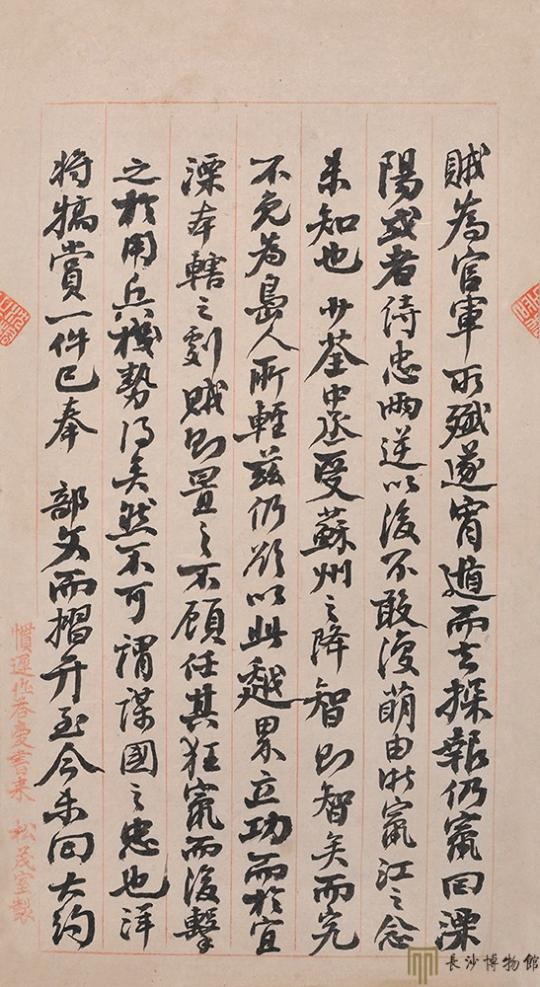 賊為官軍所殲遂宵遁而去探報仍竄回溧
陽或者侍忠兩逆以後不敢復萌由浙竄江之念
未知也 少荃中丞受蘇州之降智則智矣而究
不免為島人所輕茲仍欲以此越界立功而於宜
溧本轄之劇賊則置之不顧任其狂竄而後擊
之於用兵機勢得矣然不可謂謀國之忠也洋
將犒賞一件已奉 部文而摺弁至今未回大約
慣遲作荅愛書來 松茂室製
長沙博物館